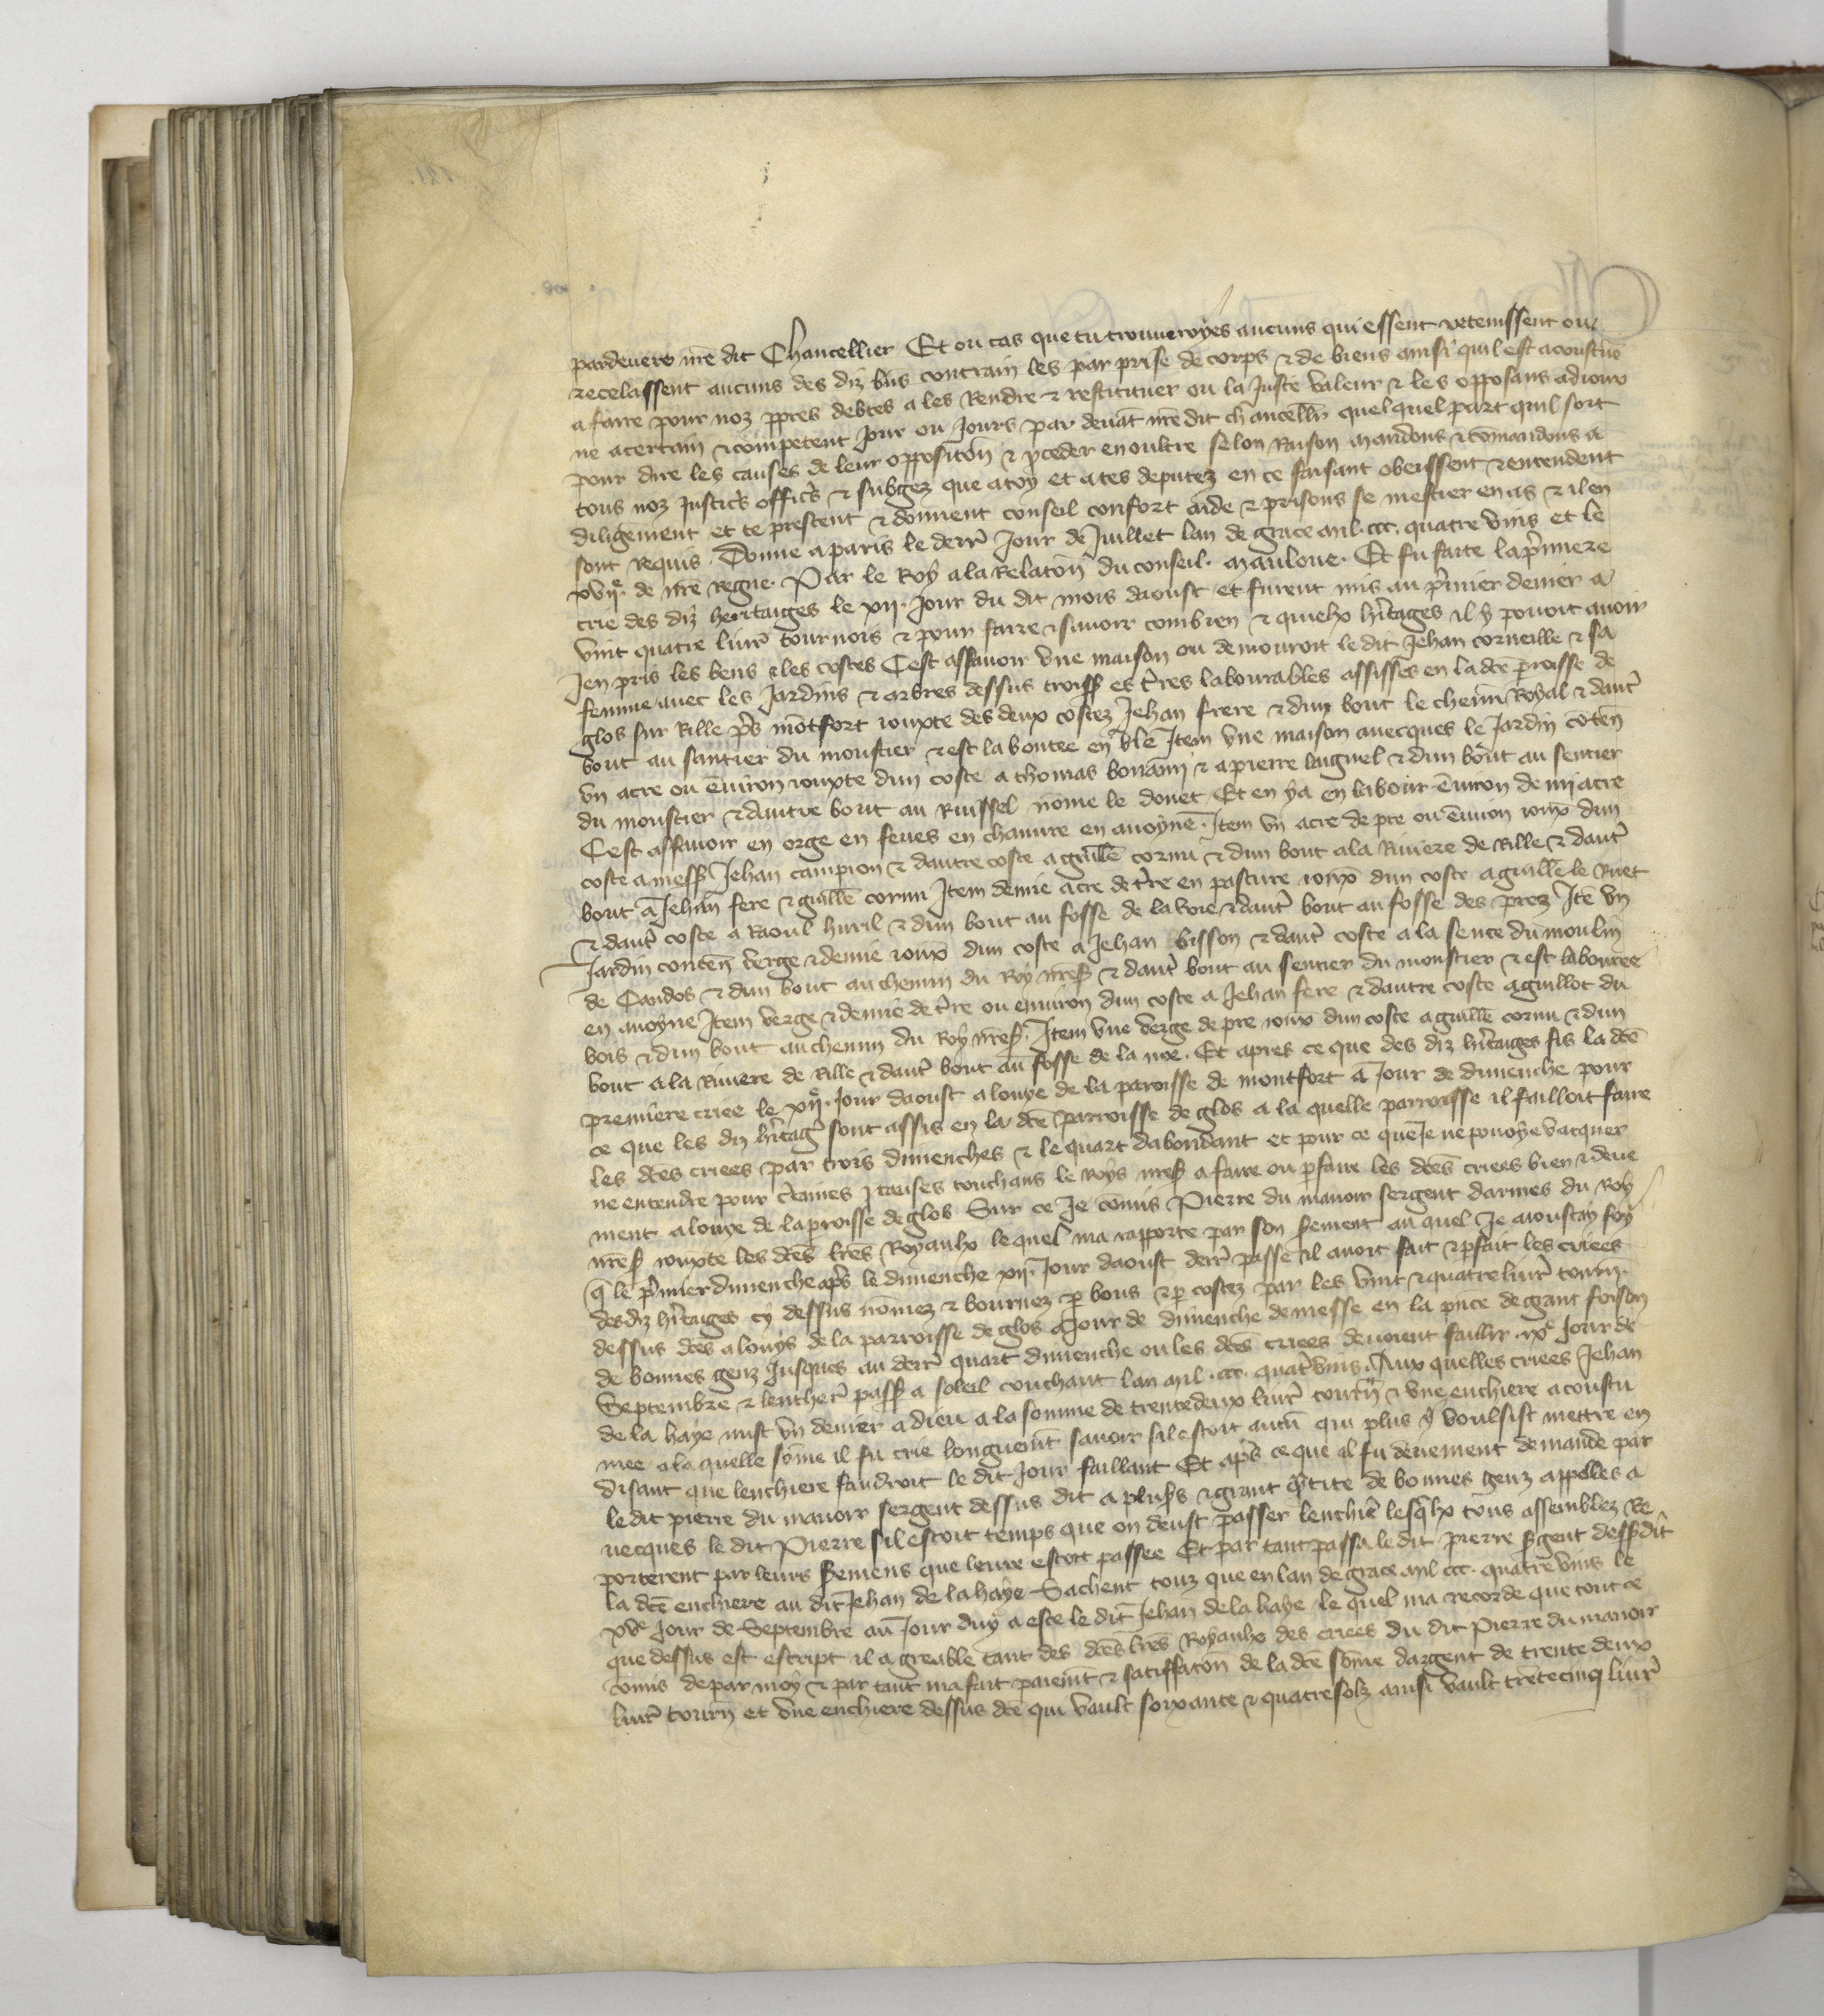 pardeuers nr̃e dit Chancellier Et ou cas que tu trouueroyes aucuns qui eussent retenissent ou
recelassent aucuns des diz bñs contrain les par prise de corps & de biens ainsi quil est acoustũe
a faire pour noz pp̃res debtes a les Rendre & restitituer ou la Juste valeur & les opposans adiour
ne a certain & competent Jour ou Jours par deuãt nr̃e dit chancell̃r quelquel part quil soit
pour dire les causes de leur oppositõn & p̃ceder en oultre selon Raison Mandons & cõmandons a
tous noz Justic̃s offic̃s & subgez que a toy et a tes deputez en ce faisant obeissent & entendent
diligẽment et te prestent & donnent conseil confort aide & prisons se mestier en as & il en
sont Requis. Donne a paris le derr̃ Jour de Juillet lan de grace mil. ccc. quatre vins et le
xvij.e de nr̃e Regne. Par le Roy a la Relatõn du conseil. Mauloue. Et fu faite la p̃miere
crie des diz heritaiges le xij. Jour du dit mois daoust et furent mis au p̃mier denier a
vint quatre liur̃ tournois & pour faire & sauoir combien & quielx hr̃itages il y pouoit auoir
Jen pris les bens & les costes Cest assauoir vne maison ou demouroit le dit Jehan corneille & sa
femme auec les Jardins & arbres dessus croiss̃ & t̃res labourables assisses en la dc̃e p̃roisse de
glos sur Rille p̃s mõtfort iouxte des deux costez Jehan frere & dun bout le chemĩ Royal & daut̃
bout au santier du moustier & est la boutee en ble Item vne maison auecques le Jardin cõteñ
vn acre ou ẽuiron iouxte dun coste a thomas bonamĩ & a pierre laignel & dun bout au sentier
du moustier & dautre bout au Ruissel nõme le douet Et en ya en labour ẽuiron demi acre
Cest assauoir en orge en feues en chanure en auoyne. Item vn acre de pre ou ẽuiron ioux̃ dun
coste a mess̃ Jehan campion & dautre coste a guill̃e cornu & dun bout a la Riuiere de Rille & daut̃
bout a Jehan fere & guill̃e cornu Item demie acre de t̃re en pasture ioux̃ dun coste a guill̃e le Ruet
& daut̃ coste a Raoul huril & dun bout au fosse de la voie & daut̃ bout au fosse des prez Itẽ vn
Jardin conteñ verge & demie ioux̃ dun coste a Jehan bisson & daut̃ coste a la sente du moulin
de Candos & dun bout au chemin du Roy nr̃es̃ & daut̃ bout au sentier du moustier & est labouree
en auoyne Item verge & demie de t̃re ou enuiron dun coste a Jehan fere & dautre coste a guillot du
bois & dun bout au chemin du Roy nr̃es̃. Item vne verge de pre ioux̃ dun coste a guill̃e cornu & dun
bout a la Riuiere de Rille & daut̃ bout au fosse de la noe. Et apres ce que des diz hr̃itaiges fis la dc̃e
premiere criee le xij.e Jour daoust a louye de la paroisse de montfort a Jour de dimenche pour
ce que les diz hr̃itag̃ sont assis en la dc̃e parroisse de glos a la quelle parroisse il failloit faire
les dc̃es criees par trois dimenches & le quart dabondant et pour ce que Je ne pouoye vacquer
ne entendre pour c̃taines causes touchans le Roys nr̃es̃ a faire ou p̃faire les dc̃es criees bien & deue
ment a louye de la p̃roisse de glos Sur ce Je cõmis Pierre du manoir sergent darmes du Roy
nr̃es̃ iouxte les dc̃es lr̃es Royaulx lequel ma rapporte par son s̃ement au quel Je aioustay foy
q̃ le p̃mier dimenche ap̃s le dimenche xij. Jour daoust derr̃ passe il auoit fait & p̃fait les criees
des diz hr̃itaiges cy dessus nõmez & bournez p̃ bous & p̃ costez par les vint & quatre liur̃ tourñ.
dessus dc̃es a louys de la parroisse de glos a Jour de dimenche de messe en la p̃nce de grant foison
de bonnes genz Jusques au derr̃ quart dimenche ou les dc̃es criees deuoient faillir .ix.e Jour de
Septembre & lencher̃ pass̃ a soleil couchant lan mil .ccc. quat̃vins. Aux quelles criees Jehan
de la haye mist vn denier a dieu a la somme de trente deux liur̃ tourñ & vne enchiere acoustu
mee a la quelle sõme il fu crie longuemt sauoir sil estoit aucũ qui plus y voulsist mettre en
disant que lenchiere faudroit le dit Jour faillant Et ap̃s ce que il fu deuement demande par
le dit pierre du manoir sergent dessus dit a plus̃s & grant q̃ntite de bonnes genz appelles a
uecques le dit Pierre sil estoit temps que on deust passer lenchie lesq̃lx tous assemblez Re
porterent par leurs s̃emens que leure estoit passee Et par tant passa le dit pierre s̃gent dess̃dit
la dc̃e enchiere au dit Jehan de la haye Sachent touz que en lan de grace mil ccc. quatre vins le
xv.e Jour de Septembre au Jour duy a este le dit Jehan de la haye le quel ma recorde que tout ce
que dessus est escript il a greable tant des dc̃es lr̃es Royaulx des criees du dit Pierre du manoir
cõmis de par moy & par tant ma fait paiemt & satiffatõn de la dc̃e sõme dargent de trente deux
liur̃ tourñ et dune enchiere dessus dc̃e qui vault soixante & quatre solz ainsi vault trẽte cinq liur̃